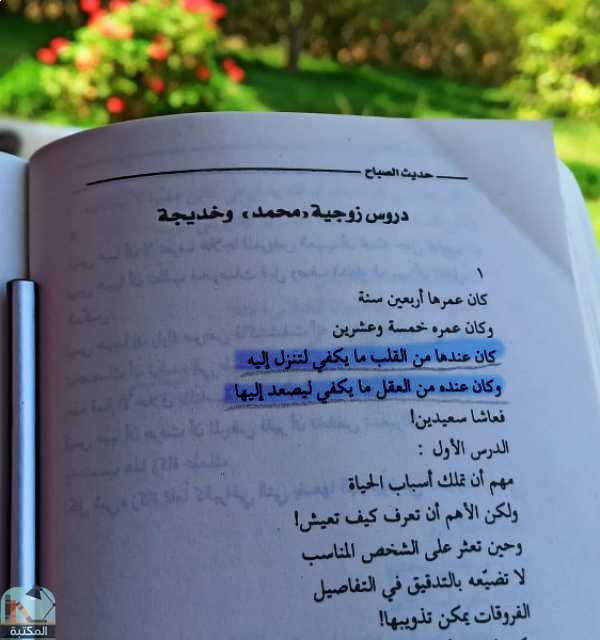 حديث الصباح
دروس زوجية «محمد» وخديجة
١
كان عمرها أربعين سنة
وكان عمره خمسة وعشرين
كان عندها من القلب ما يكفي لتنزل إليه
وكان عنده من العقل ما يكفي ليصعد إليها
فعاشا سعيدين!
الدرس الأول :
مهم أن تملك أسباب الحياة
ولكن الأهم أن تعرف كيف تعيش!
وحين تعثر على الشخص المناسب
لا تضيّعه بالتدقيق في التفاصيل
الفروقات يمكن تذويبها!
المكتبة